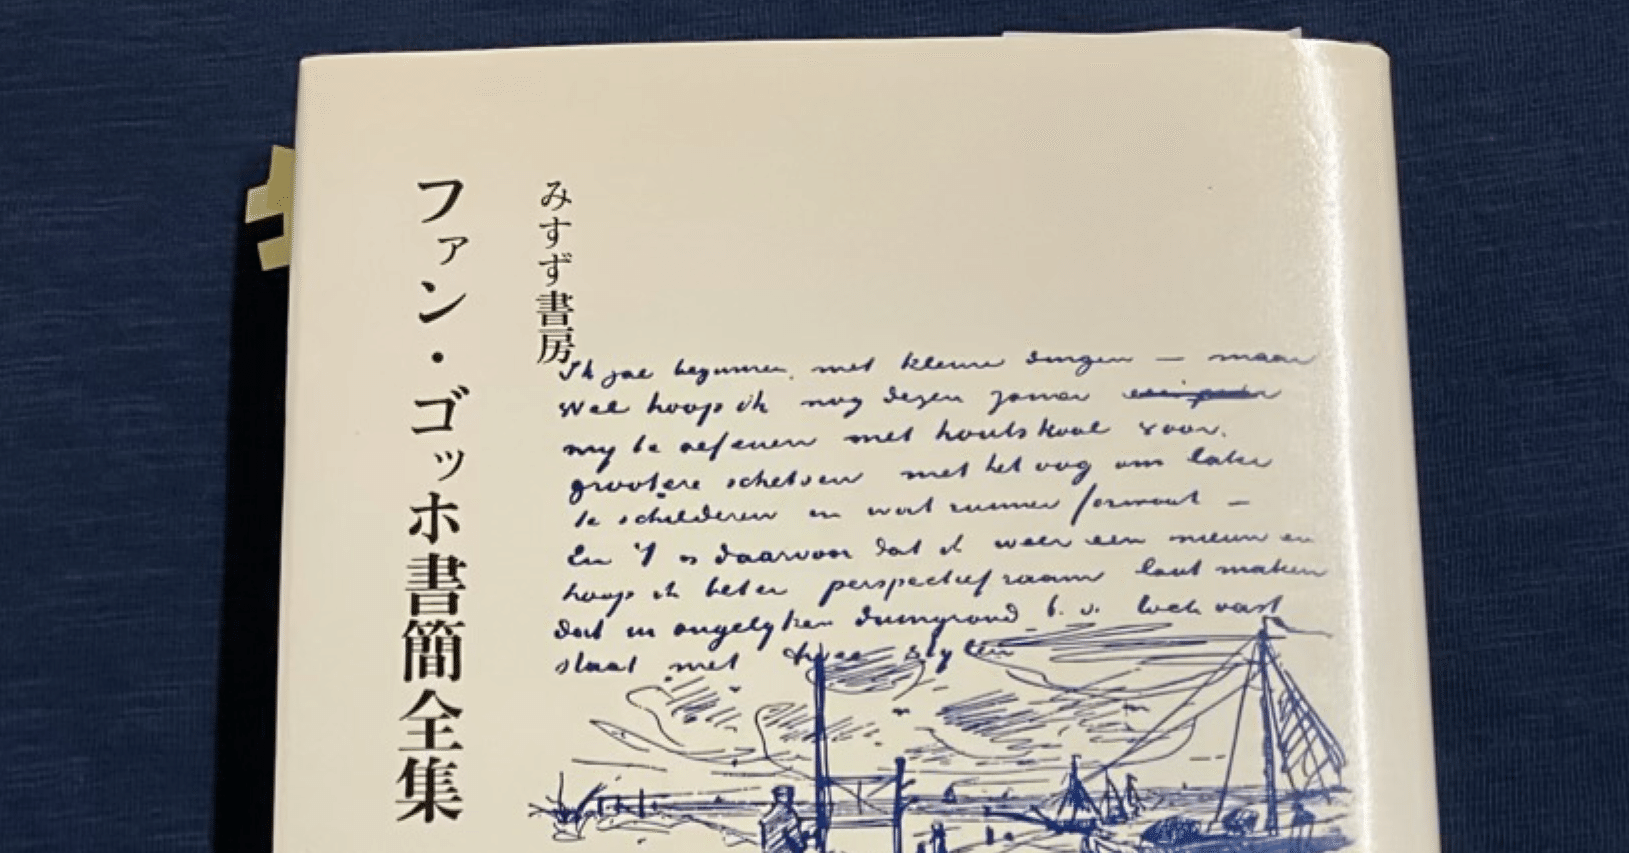 みすず書房
ファン・ゴッホ書簡全集
Ik zal beginnen met kleine dingen — maar
wel hoop ik nog dezen zomer
my te oefenen met houtskool voor
grootere schetsen met het oog om later
te schilderen en wat ruimer formaat —
En 't is daarvoor dat ik weer een nieuw en
hoop ik beter perspectiefraam laat maken
dat in ongelyken duingrond b.v. vast
staat met twee